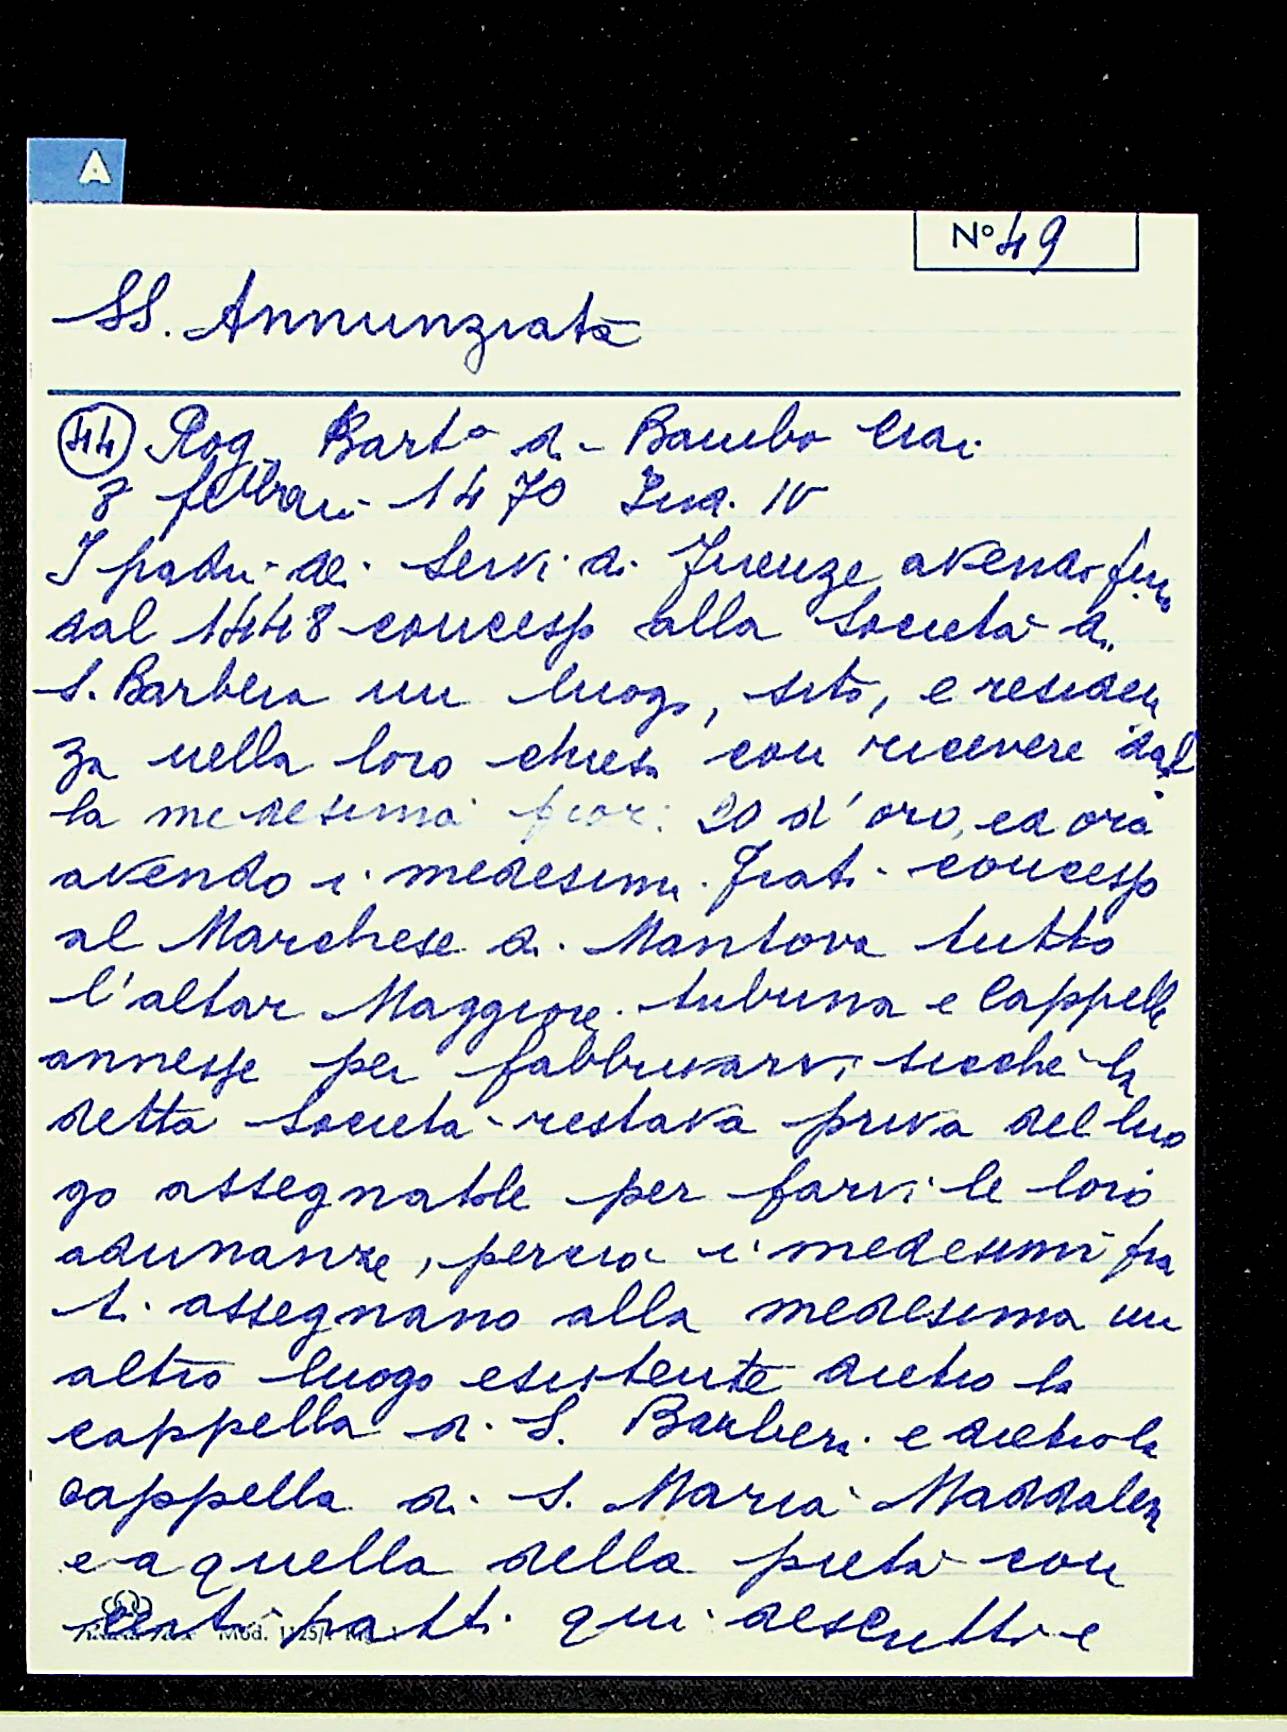 A
Nº 49
SS. Annunziata
44 Rog. Bart° di Bambo Ciai
8 febbrai 1470 Ind. IV
I padri dei Servi di Firenze avendo fin
dal 1448 concesso alla Società di
S. Barbera un luogo, sito, e residen
za nella loro chiesa con ricevere dal
la medesima fior: 20 d'oro, ed ora
avendo i medesimi Frati concesso
al Marchese di Mantova tutto
l'altar Maggiore. tribuna e Cappelle
annesse per fabbricarvi sicchè la
detta Società restava priva del luo
go assegnatole per farvi le loro
adunanze, perciò i medesimi fra
ti assegnano alla medesima un
altro luogo esistente dietro la
cappella di S. Barbera e dietro la
cappella di S. Maria Maddalena
e a quella della pietà con
certi patti qui descritti e
Mod.